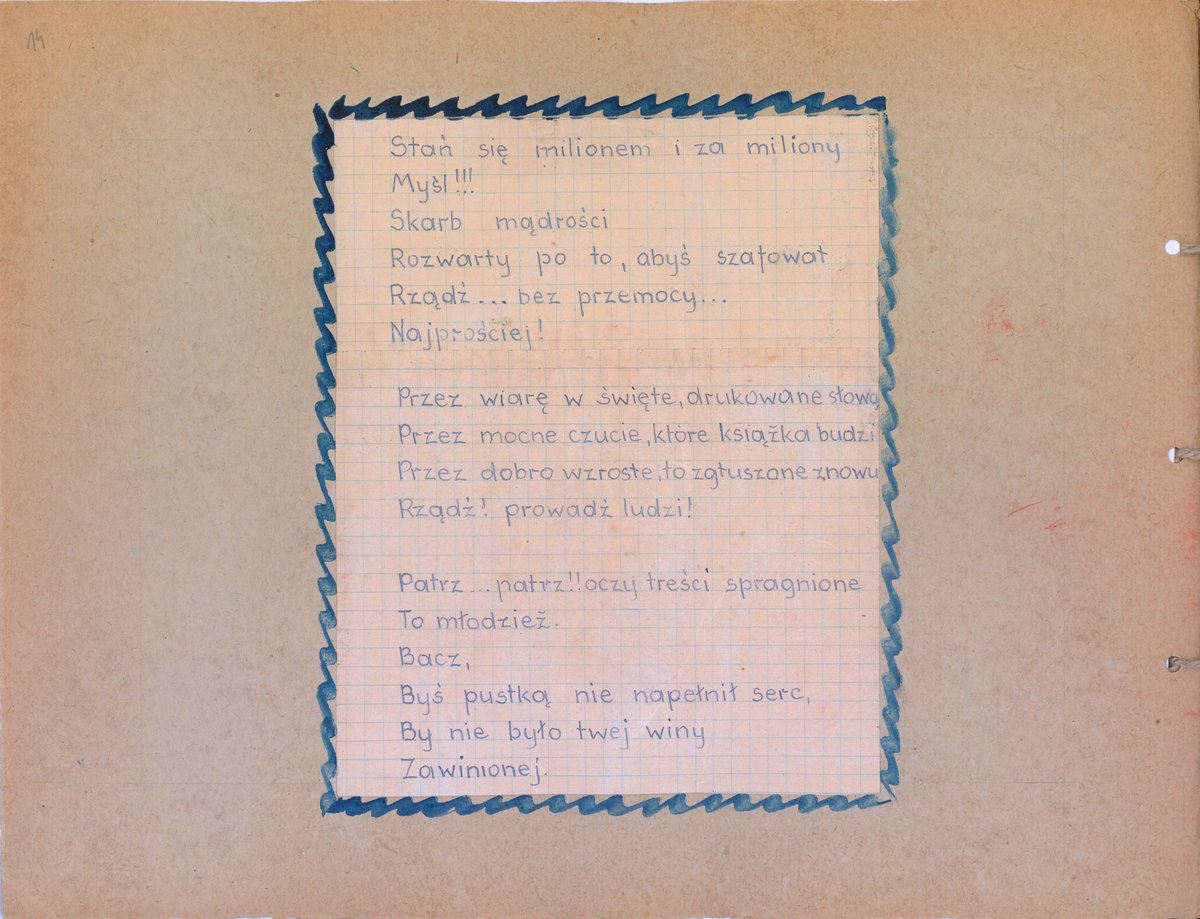 14
Stań się milionem i za miliony
Myśl!!!
Skarb mądrości
Rozwarty po to, abyś szafował
Rządź... bez przemocy...
Najprościej!
Przez wiarę w święte, drukowane słowa
Przez mocne czucie, które książka budzi
Przez dobro wzrosłe, to zgłuszone znowu
Rządź! prowadź ludzi!
Patrz... patrz!! oczy treści spragnione
To młodzież.
Bacz,
Byś pustką nie napełnił serc,
By nie było twej winy
Zawinionej.